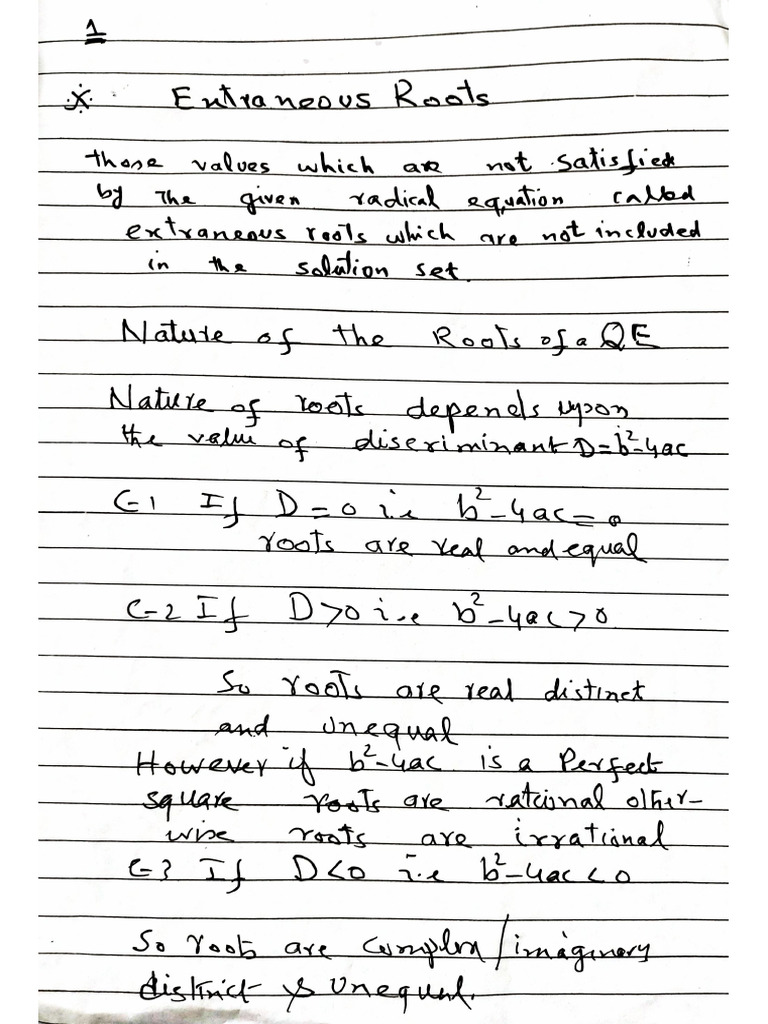 1
※ Extraneous Roots
those values which are not satisfied
by The given radical equation called
extraneous roots which are not included
in the solution set.
Nature of the Roots of a QE
Nature of roots depends upon
the value of discriminant D=b²-4ac
C-1 If D=0 i.e b²-4ac=0
roots are real and equal
C-2 If D>0 i.e b²-4ac>0
So roots are real distinct
and unequal
However if b²-4ac is a Perfect
square roots are rational other-
wise roots are irrational
C-3 If D<0 i.e b²-4ac<0
So roots are complex/imaginary
distinct & Unequal.